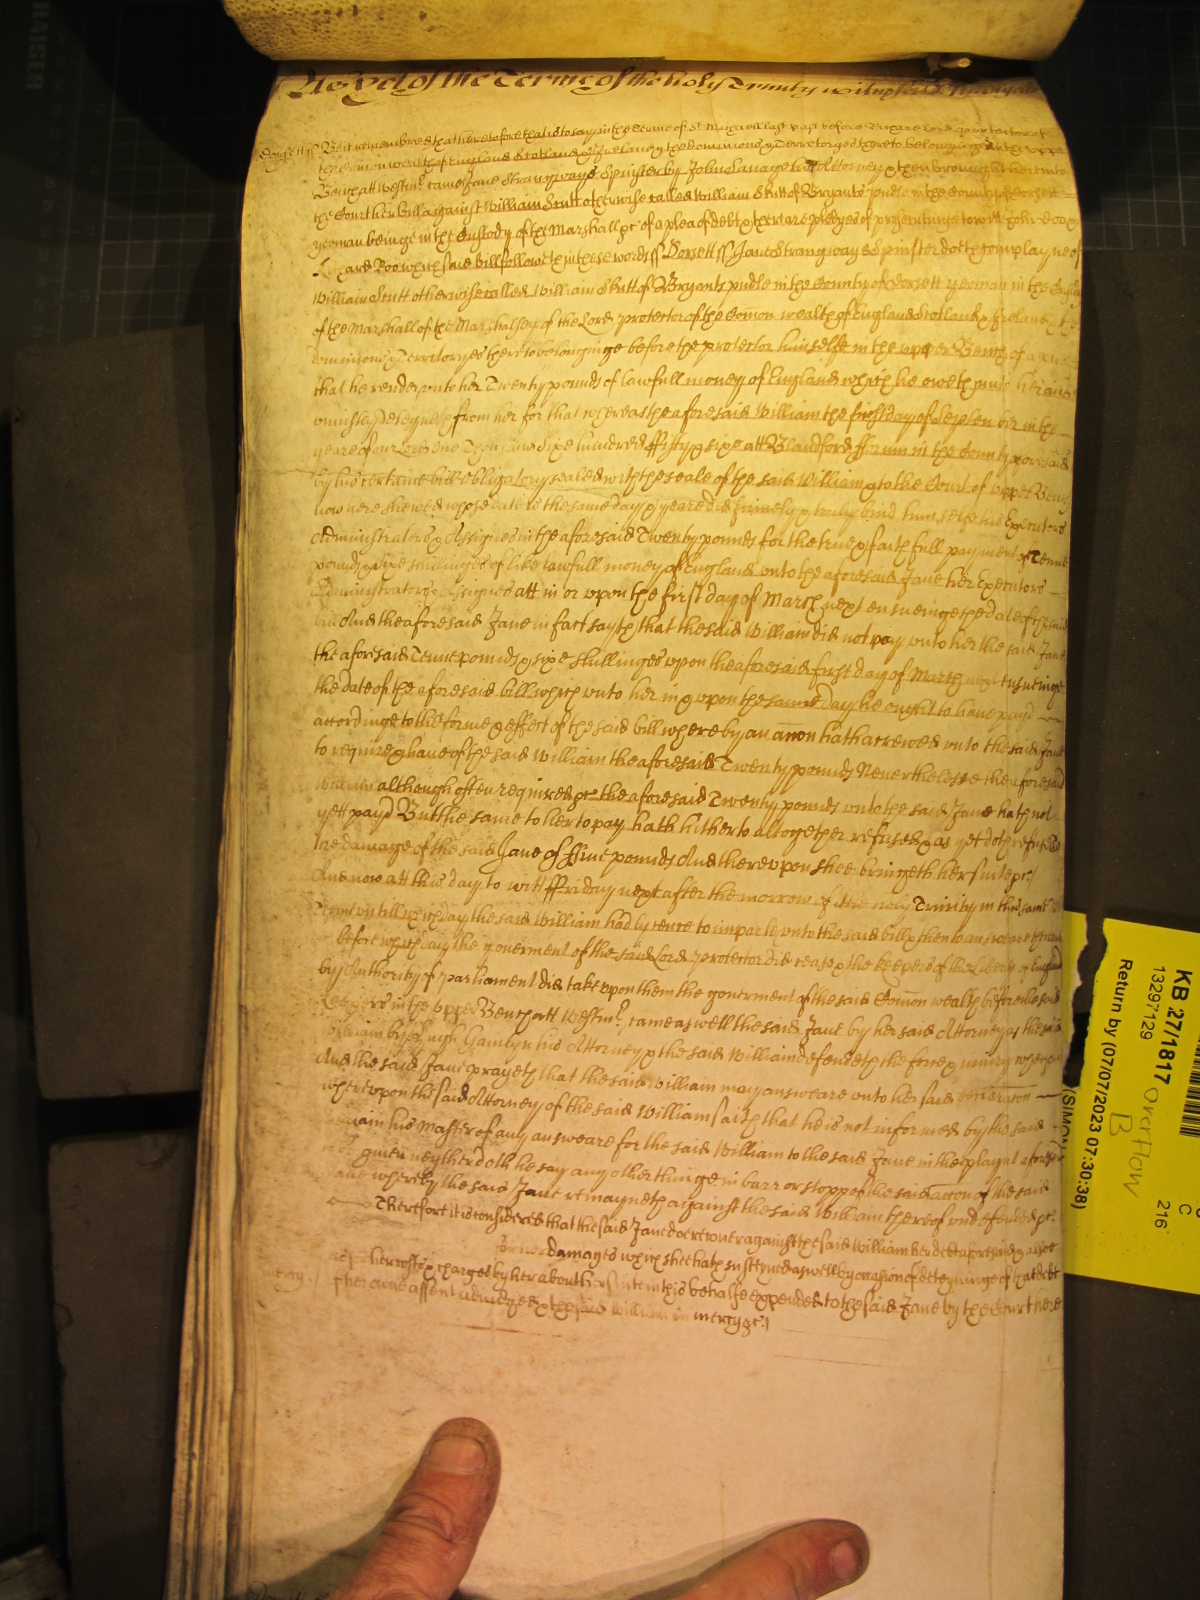 As yet of the Terme of the holy Trinity witnes
Dorsett ss Be it remembred that heretofore that is to say in the terme of St Michaell last past before Oliver Lord protector of
the Comon wealth of England Scotland & Ireland & the dominions & Territoryes thereto belonginge in the upper
Bench att Westmr came Jane Strangways Spinster by John his Attorney & then brought here into
the Court her bill against William Skutt otherwise called William Skutt of Bryants pudle in the County of Dorsett
yeoman beinge in the Custody of the Marshall &c of a plea of debt & there are pledges of prosecutinge to witt John Doo &
Richard Roo which said bill followeth in these words ss Dorsett ss Jane Strangwayes Spinster doth complayne of
William Skutt otherwise called William Skutt of Bryants pudle in the County of Dorsett yeoman in the Custody
of the Marshall of the Marshalsey of the Lord protector of the Comon wealth of England Scotland & Ireland & the
dominions & Territoryes thereto belonginge before the protector himselfe in the upper Bench of a plea
that he render unto her Twenty pounds of lawfull money of England which he oweth unto her and
uniustly deteyneth from her for that whereas the aforesaid William the first day of September in the
yeare of our Lord One Thousand Sixe hundred ffifty & sixe att Blandford fforum in the County aforesaid
by his certaine bill obligatory sealed with the seale of the said William & to the Court of upper Bench
now here shewed whose date is the same day & yeare did firmely & truly bind himselfe his Executors
Administrators & Assignes in the aforesaid Twenty pounds for the true & faithfull payment of Tenne
pounds & sixe shillinges of like lawfull money of England unto the aforesaid Jane her Executors
Administrators Assignes att in or upon the first day of March next ensueinge the date of the said
bill And the aforesaid Jane in fact sayth that the said William did not pay unto her the said Jane
the aforesaid Tenne pounds & sixe shillinges upon the aforesaid first day of March next ensueinge
the date of the aforesaid bill which unto her in & upon the same day he ought to have payd
accordinge to the forme & effect of the said bill whereby an accon hath accrewed unto the said Jane
to require & have of the said William the aforesaid Twenty pounds Neverthelesse the aforesaid
William although often required &c the aforesaid Twenty pounds unto the said Jane hath not
yett payd But the same to her to pay hath hitherto altogether refused & as yet doth refuse to
the damage of the said Jane of ffive pounds And thereupon shee bringeth her suite &c
And now att this day to witt ffriday next after the morrow of the holy Trinity in this same
Terme untill which day the said William had lycence to imparle unto the said bill & then to answeare &c
before which day the goverment of the said Lord protector did cease & the keepers of the Liberty of England
by Authority of parliament did take upon them the goverment of the said Comon wealth before the said
Keepers in the upper Bench att Westmr. came aswell the said Jane by her said Attorney as the said
William by Hugh Hamlyn his Attorney & the said William defendeth the force & iniury when &c
And the said Jane prayeth that the said William may answeare unto her said declaracon
whereupon the said Attorney of the said William saith that he is not informed by the said
William his Master of any answeare for the said William to the said Jane in the playnt aforesaid
to be given neyther doth he say any other thinge in barr or stopp of the said accon of the said
Jane whereby the said Jane remayneth against the said William thereof undefended &c.
Therefore it is considered that the said Jane doe recover against the said William her debt aforesaid & alsoe
for her damages which shee hath susteyned aswell by occasion of deteyninge of that debt
as for her costs & charges by her about her suite in this behalfe expended to the said Jane by the Court here
mercy. / of her owne assent adiudged & the said William in mercy &c. /
KB 27/1817
13297129
Return by (07/07/2023 07:30:38)
Overflow
B
C
216
(SIMON